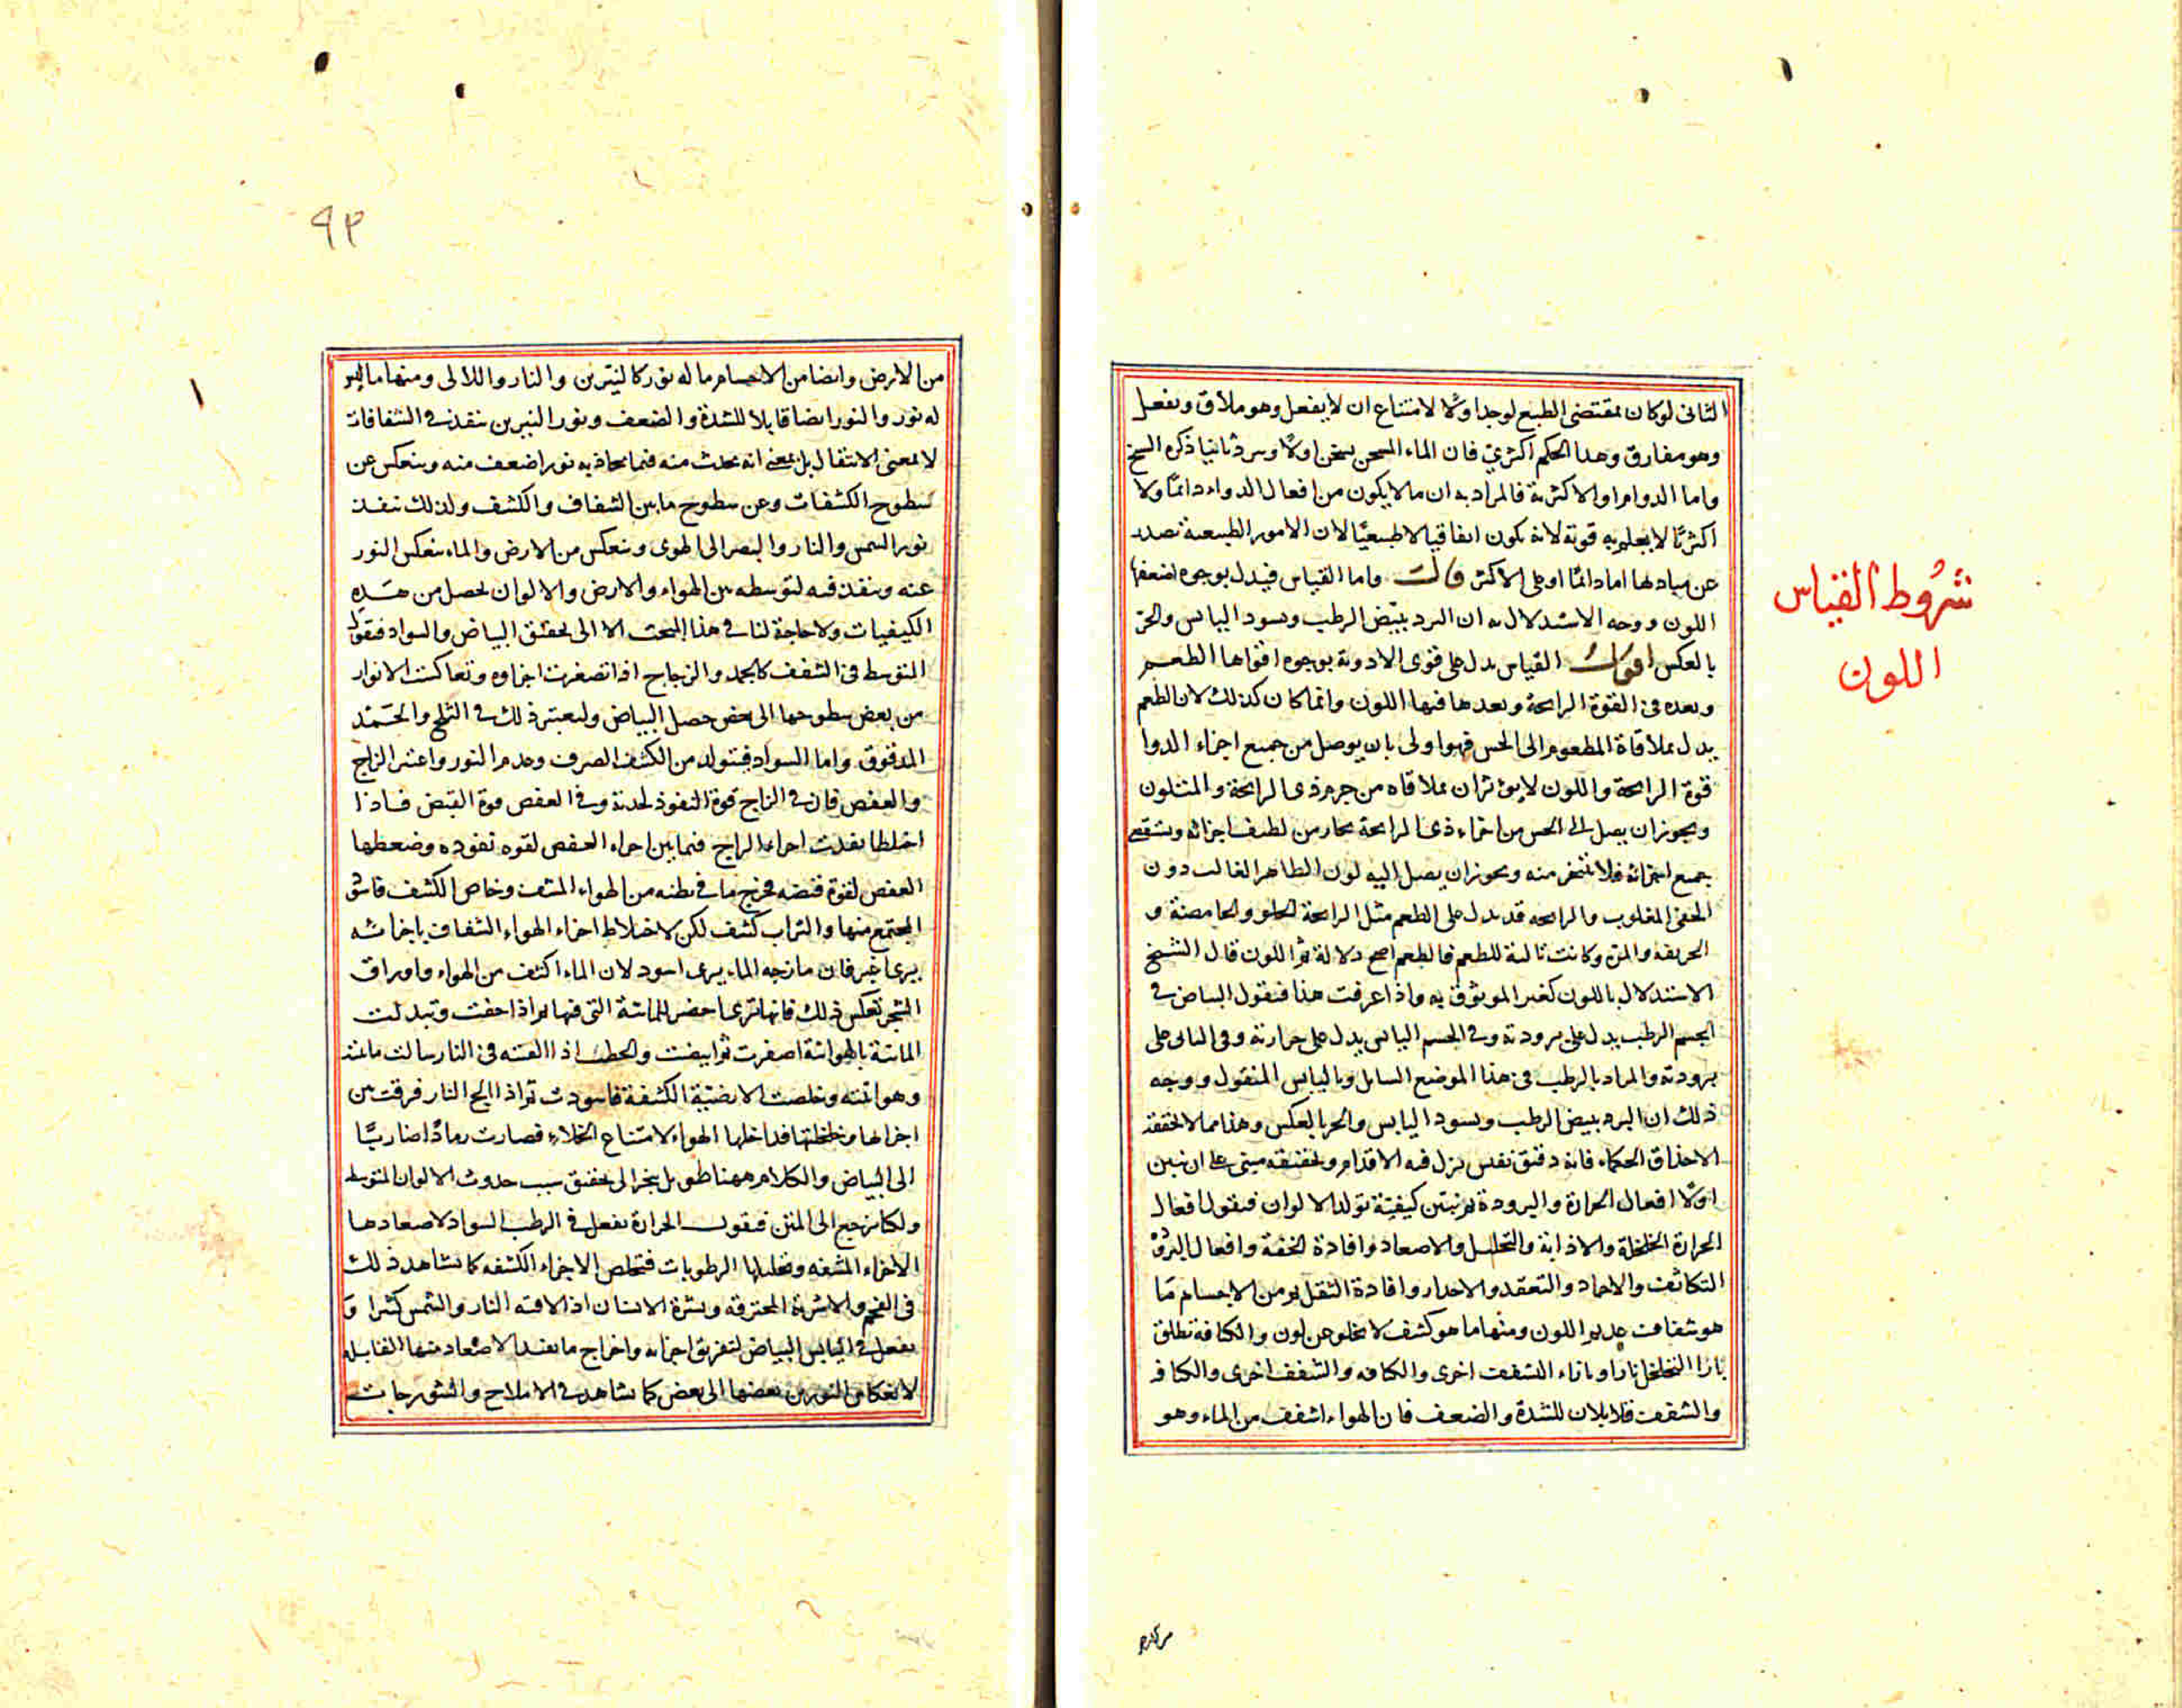 الثانى لوكان مقتضى الطبع لوجد اولا لامتناع ان لا يفعل وهو ملاق ويفعل
وهو مفارق وهذا الحكم اكثرى فان الماء المسخن يسخن اولا ويبرد ثانيا ذكره الشيخ
واما الدوام او الاكثرية فالمراد به ان ما لا يكون من افعال الدواء دائما ولا
اكثريا لا يعلم به قوته لانه يكون اتفاقيا لا طبيعيا لان الامور الطبيعية تصدر
عن مباديها اما دائما او على الاكثر قالــ واما القياس فيدل بوجوه اضعفها
اللون ووجه الاستدلال به ان البرد يبيض الرطب ويسود اليابس والحر
بالعكس اقولــ القياس يدل على قوى الادوية بوجوه اقواها الطعم
وبعده فى القوة الرايحة وبعدها فيها اللون وانما كان كذلك لان الطعم
يدل بملاقاة المطعوم الى الحس فهو اولى بان يوصل من جميع اجزاء الدوا
قوة الرايحة واللون لا يؤثران بملاقاه من جرم ذى الرايحة والمتلون
ويجوز ان يصل الى الحس من اجزاء ذى الرايحة بخار من لطيف اجزائه
جميع اجزائه فلا ينفخر منه ويجوز ان يصل اليه لون الظاهر الغالب دون
الخفى المغلوب والرايحه قد تدل على الطعم مثل الرايحة الحلو والحامضة و
الحريفه والمرة وكانت تالية للطعم فالطعم اصح دلالة ثم اللون قال الشيخ
الاستدلال باللون كغير الموثوق به واذا عرفت هذا فنقول البياض فى
الجسم الرطب يدل على برودته وفى الجسم اليابس يدل على حرارته وفى الثانى على
برودته والمراد بالرطب فى هذا الموضع السايل وباليابس المنقول ووجه
ذلك ان البرد يبيض الرطب ويسود اليابس والحر بالعكس وهذا مما لا يحققه
الا حذاق الحكماء فانه دقيق نفيس تزل فيه الاقدام وتحقيقه مبنى على ان نبين
اولا افعال الحرارة والبرودة ثم نبين كيفية تولد الالوان فنقول افعال
الحرارة الخلخلة والاذابة والتحليل والاصعاد وافادة الخفة وافعال البرد
التكاثف والاجماد والتعقيد والاحدار وافادة الثقل ثم من الاجسام ما
هو شفاف عديم اللون ومنها ما هو كثيف لا يخلو عن لون والكثافة تطلق
بازا التخلخل تارا وبازاء الشفف اخرى والكثافه والشفف اخرى والكثافه
والشفف قابلان للشدة والضعف فان الهواء اشفف من الماء وهو
شروط القياس
اللون
من الارض
٩٣
من الارض وايضا من الاجسام ما له نور كالنيرين والنار واللالى ومنها ما ليس
له نور والنور ايضا قابلا للشدة والضعف ونور النيرين ينفذ فى الشفافات
لا بمعنى الانتقال بل بمعنى انه يحدث منه فيما يحاذيه نور اضعف منه وينعكس عن
سطوح الكثيفات وعن سطوح ما بين الشفاف والكثيف ولذلك ينفذ
نور الشمس والنار والبصر الى الهوى وينعكس من الارض والماء ينعكس النور
عنه وينفذ فيه لتوسطه بين الهواء والارض والالوان تحصل من هذه
الكيفيات ولا حاجة لنا فى هذا المبحث الا الى تحقيق البياض والسواد فنقول
المتوسط فى الشفف كالجمد والزجاج اذا تصغرت اجزاوه وتعاكست الانوار
من بعض سطوحها الى بعض حصل البياض وليعتبر ذلك فى الثلج والجمد
المدقوق واما السواد فيتولد من الكثيف الصرف وعدم النور واعتبر الزاج
والعفص فان فى الزاج قوة النفوذ لحدته وفى العفص قوة القبض فاذا
اختلطا نفذت اجزاء الزاج فيما بين اجزاء العفص لقوه نفوذه وضغطها
العفص لقوة قبضه فخرج ما فى بطنه من الهواء المشف وخاص الكثيف
المجتمع منها والتراب كثيف لكن لاختلاط اجزاء الهواء الشفاف باجزائه
يرى اغبر فان مازجه الماء يرى اسود لان الماء اكثف من الهواء واوراق
الشجر بعكس ذلك فانها ترى اخضر للمائية التى فيها ثم اذا جفت وتبدلت
المائية بالهوائية اصفرت ثم ابيضت والحطب اذا القيته فى النار سالت مائيته
وهوائيته وخلصت الارضية الكثيفة فاسودت ثم اذا الح النار فرقت بين
اجزائها وخلخلتها فداخلها الهواء لامتناع الخلاء فصارت رمادا ضاربا
الى البياض والكلام ههنا طويل ينجر الى تحقيق سبب حدوث الالوان المتوسط
ولكنا نرجع الى المتن فنقول الحرارة تفعل فى الرطب السواد لاصعادها
الاجزاء المشفه وتحليلها الرطوبات فتخلص الاجزاء الكثيفه كما يشاهد ذلك
فى الفحم والاشربة المحترقه وبشرة الانسان اذا لاقته النار والشمس كثيرا و
تفعل فى اليابس البياض لتفريق اجزائه واخراج ما يفيد الاصعاد منها القابله
لانعكاس النور من بعضها الى بعض كما يشاهد فى الاملاح
١